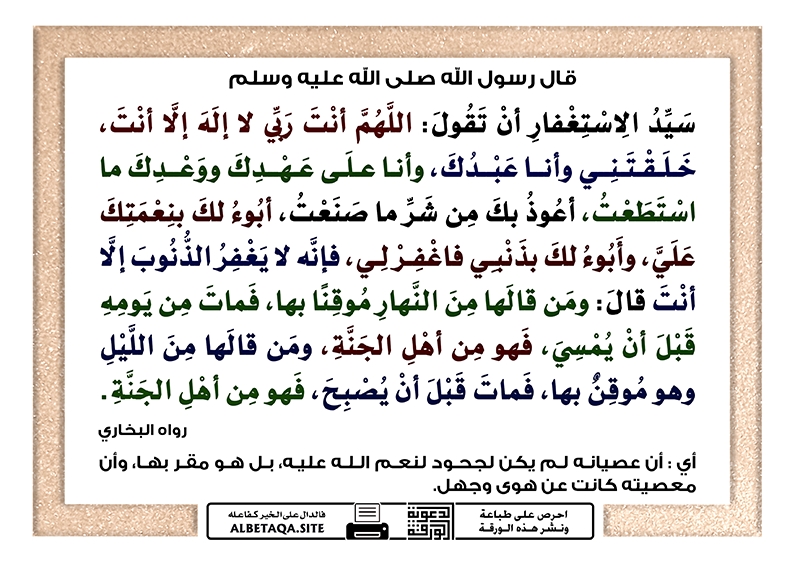 قال رسول الله صلى الله عليه وسلم
سَيِّدُ الِاسْتِغْفارِ أنْ تَقُولَ: اللَّهُمَّ أنْتَ رَبِّي لا إلَهَ إلَّا أنْتَ،
خَلَقْتَنِي وأنا عَبْدُكَ، وأنا علَى عَهْدِكَ ووَعْدِكَ ما
اسْتَطَعْتُ، أعُوذُ بكَ مِن شَرِّ ما صَنَعْتُ، أبُوءُ لكَ بنِعْمَتِكَ
عَلَيَّ، وأَبُوءُ لكَ بذَنْبِي فاغْفِرْ لِي، فإنَّه لا يَغْفِرُ الذُّنُوبَ إلَّا
أنْتَ قالَ: ومَن قالَها مِنَ النَّهارِ مُوقِنًا بها، فَماتَ مِن يَومِهِ
قَبْلَ أنْ يُمْسِيَ، فَهو مِن أهْلِ الجَنَّةِ، ومَن قالَها مِنَ اللَّيْلِ
وهو مُوقِنٌ بها، فَماتَ قَبْلَ أنْ يُصْبِحَ، فَهو مِن أهْلِ الجَنَّةِ.
رواه البخاري
أي : أن عصيانه لم يكن لجحود لنعم الله عليه، بل هو مقر بها، وأن
معصيته كانت عن هوى وجهل.
احرص على طباعة
ونشر هذه الورقة
الدعوية
الورقة
فالدال على الخير كفاعله
ALBETAQA.SITE